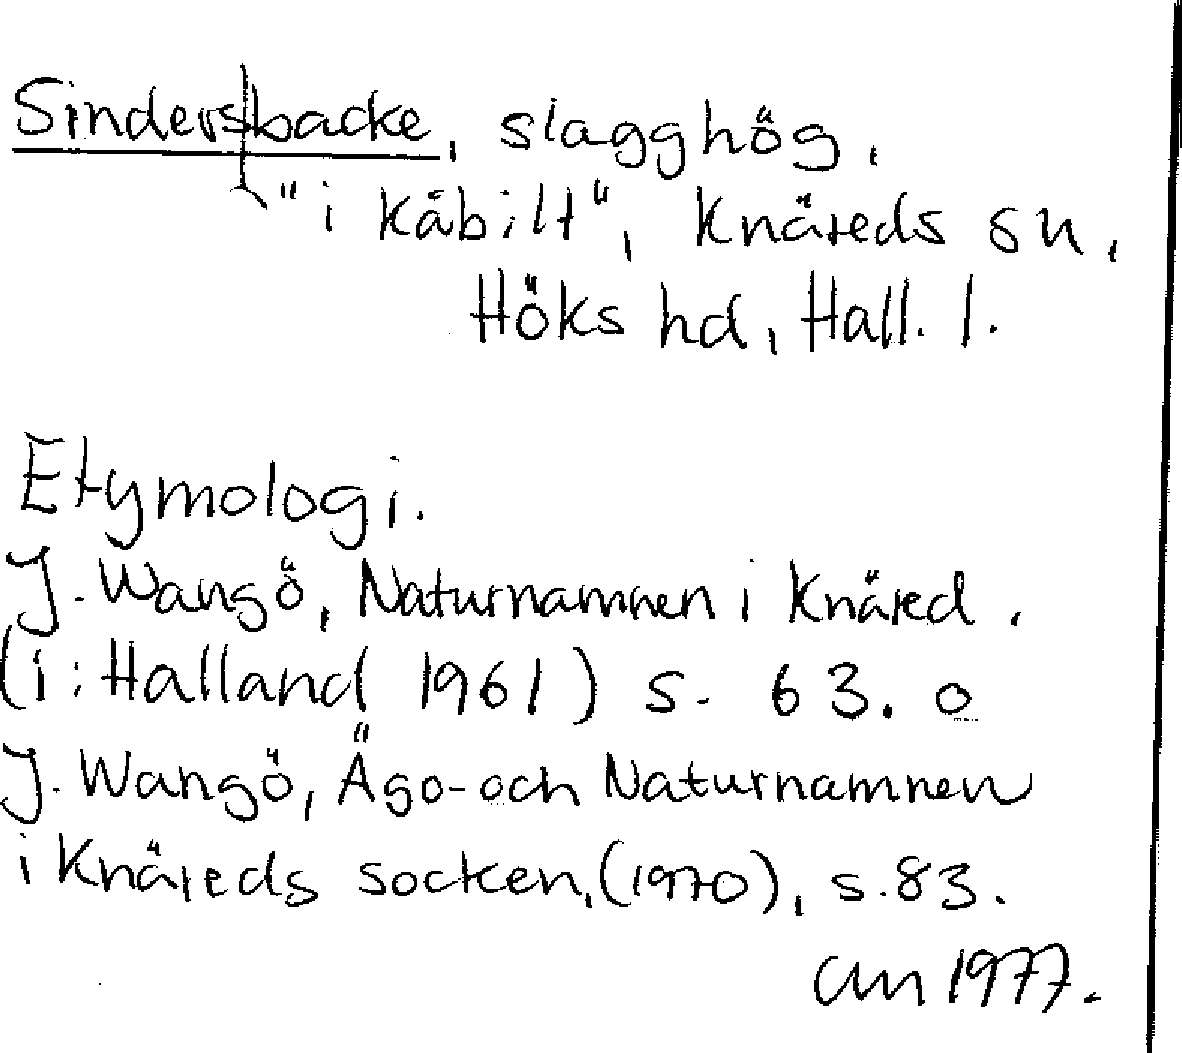 Sindersbacke, slagghög,
"i Kåbilt", Knäreds sn,
Höks hd, Hall. l.
Etymologi.
J. Wangö, Naturnamnen i Knäred,
(i: Halland 1961) s. 63. o
J. Wangö, Ägo- och Naturnamnen
i Knäreds socken, (1970), s. 83.
1977.